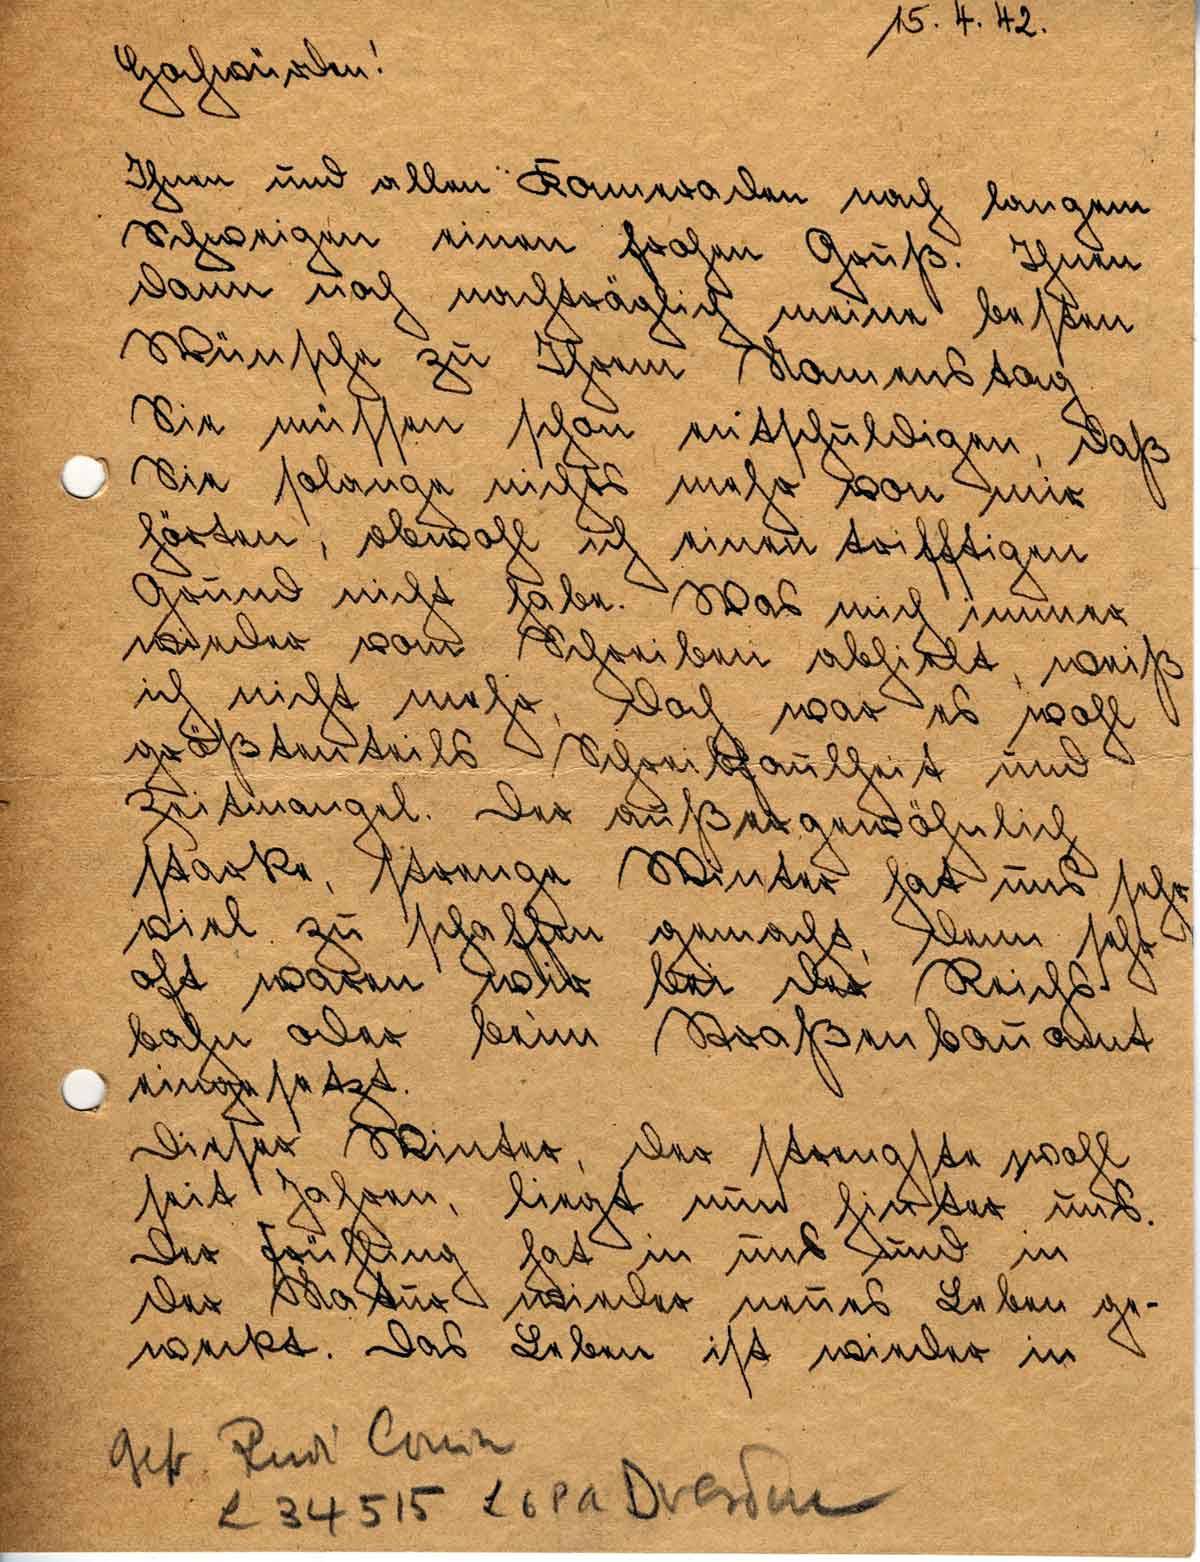 15. 4. 42.
Hochwürden!
Ihnen und allen Kameraden nach langem
Schweigen einen frohen Gruß. Ihnen
dann noch nachträglich meine besten
Wünsche zu Ihrem Namenstag
Sie müssen schon entschuldigen, daß
Sie solange nichts mehr von mir
hörten, obwohl ich einen trifftigen
Grund nicht habe. Was mich immer
wieder vom Schreiben abhielt, weiß
ich nicht mehr, doch war es wohl
größtenteils Schreibfaulheit und
Zeitmangel. Der außergewöhnlich
starke, strenge Winter hat uns sehr
viel zu schaffen gemacht, denn sehr
oft waren wir bei der Reichs-
bahn oder beim Straßenbauamt
eingesetzt.
Dieser Winter, der strengste wohl
seit Jahren, liegt nun hinter uns.
Der Frühling hat in uns und in
der Natur wieder neues Leben ge-
weckt. Das Leben ist wieder in
Gefr. Rudi
L 34515 LGPA Dresden